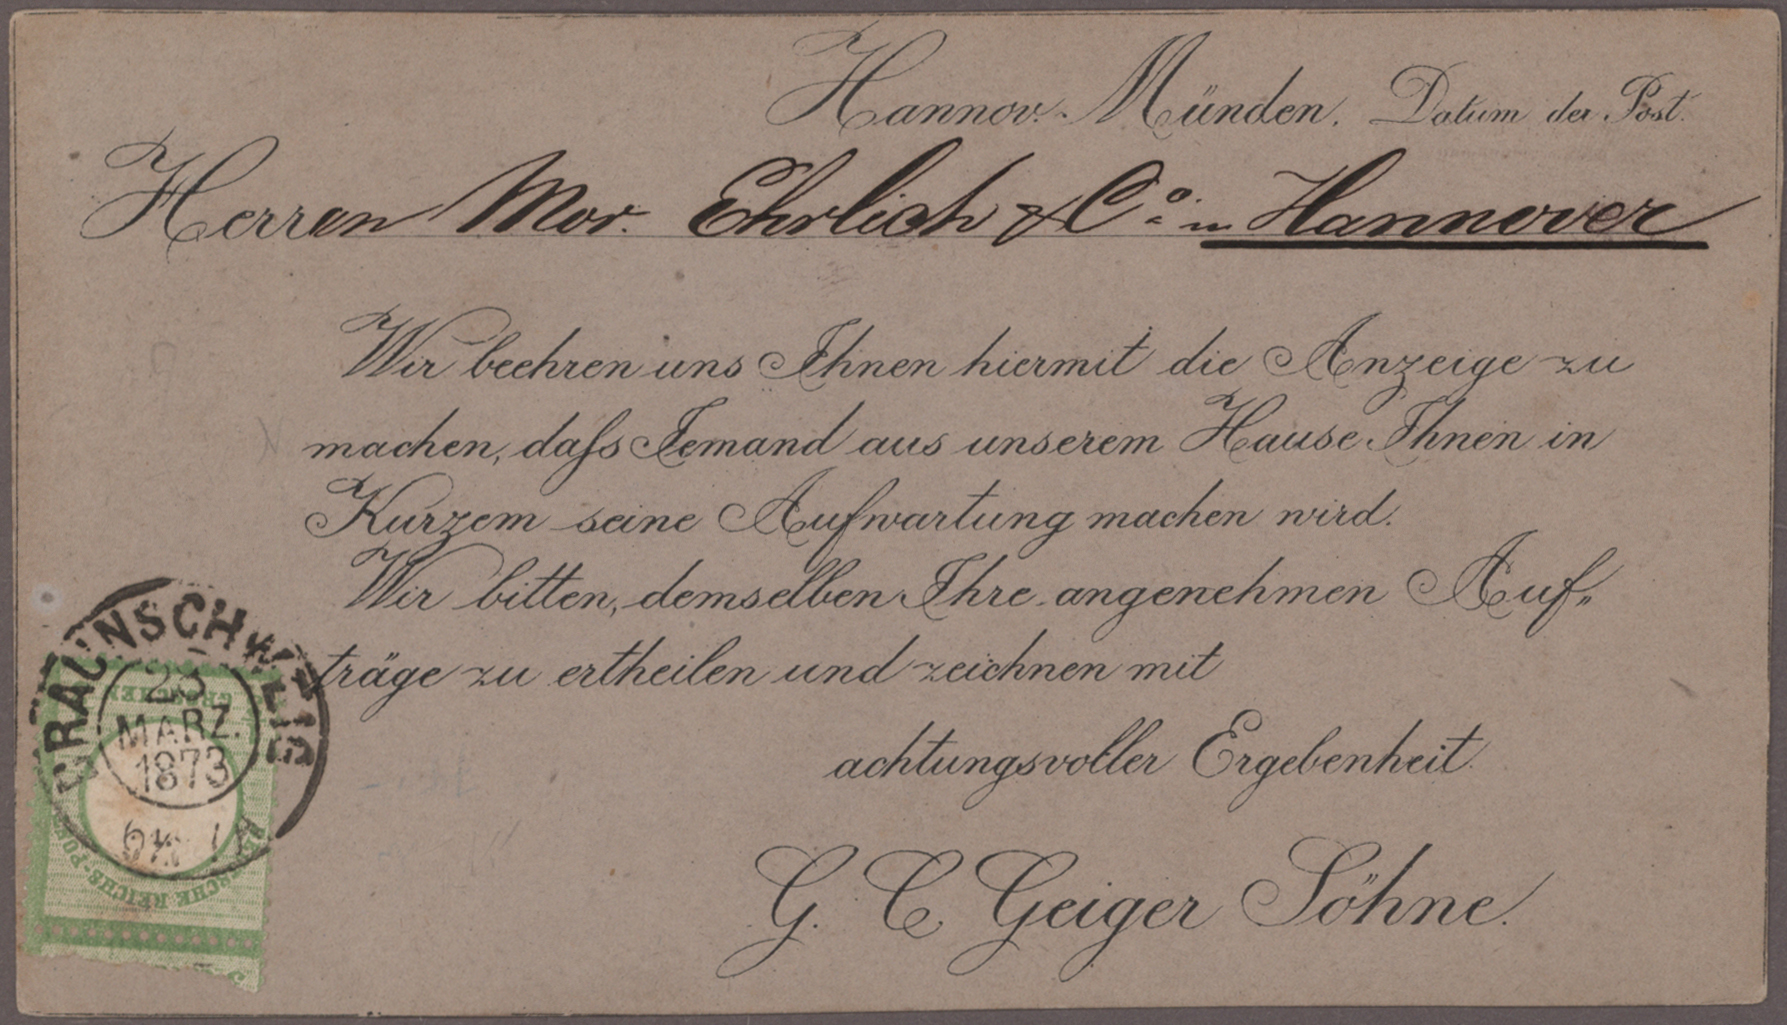 Hannov. Münden. Datum der Post.
Herren Mor. Ehrlich & Co. in Hannover
Wir beehren uns Ihnen hiermit die Anzeige zu
machen, daſs Jemand aus unserem Hause Ihnen in
Kurzem seine Aufwartung machen wird.
Wir bitten, demselben Ihre angenehmen Auf„
träge zu ertheilen und zeichnen mit
achtungsvoller Ergebenheit
G. C Geiger Söhne.
BRAUNSCHWEIG
23
MARZ.
1873
GROSCHEN
DEUTSCHE REICHS-POST